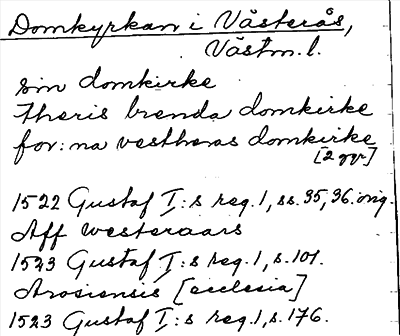 Domkyrkan i Västerås,
Västm. l.
sin domkirke
theris brenda domkirke
for:na vestheras domkirke
[2 ggr]
1522 Gustaf I:s reg. 1, ss. 35, 36. orig.
Aff westeraars
1523 Gustaf I:s reg. 1, s. 101.
Arosiensis [ecclesia]
1523 Gustaf I:s reg. 1, s. 176.